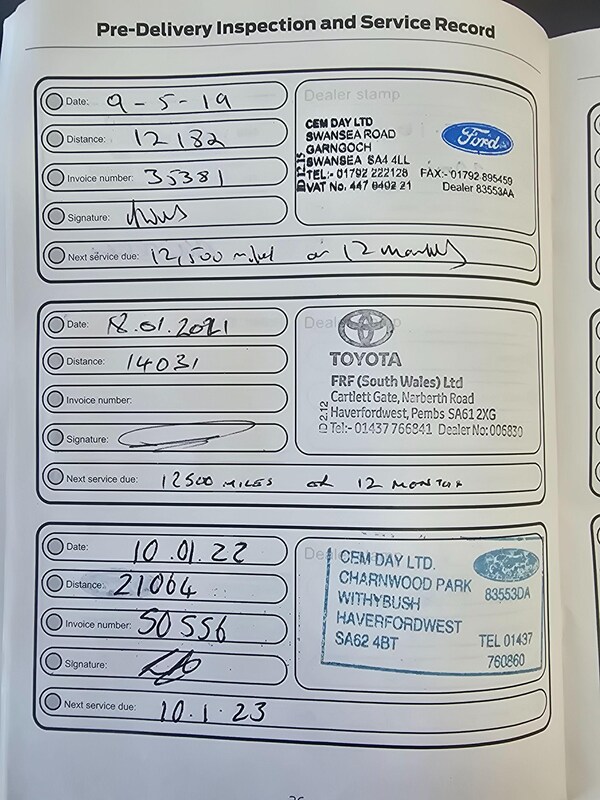 Pre-Delivery Inspection and Service Record
Date: 9-5-19
Distance: 12182
Invoice number: 35381
Signature:
Next service due: 12,500 miles or 12 months
Dealer stamp
CEM DAY LTD
SWANSEA ROAD
GARNGOCH
SWANSEA SA4 4LL
TEL:- 01792 222128 FAX:- 01792 895459
VAT No. 447 0402 21 Dealer 83553AA
ID 12.15
Ford
Date: 18.01.2021
Distance: 14031
Invoice number:
Signature:
Next service due: 12500 MILES OR 12 MONTHS
Dealer stamp
TOYOTA
FRF (South Wales) Ltd
Cartlett Gate, Narberth Road
Haverfordwest, Pembs SA61 2XG
Tel:- 01437 766841 Dealer No: 006830
ID 2.12
Date: 10.01.22
Distance: 21064
Invoice number: 50556
Signature:
Next service due: 10.1.23
Dealer stamp
CEM DAY LTD.
CHARNWOOD PARK
83553DA
WITHYBUSH
HAVERFORDWEST
SA62 4BT TEL 01437
760860